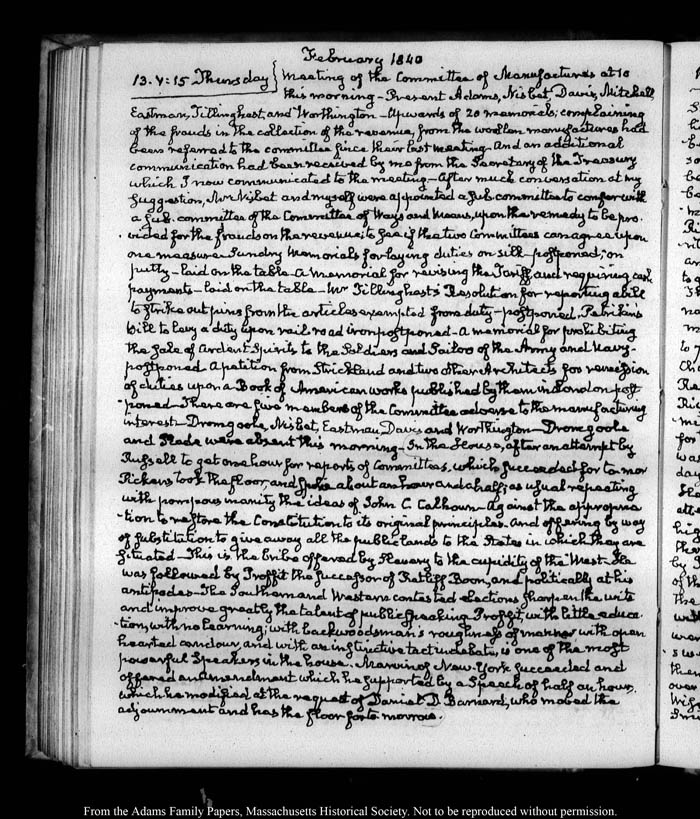 February 1840
13. V:15 Thursday } Meeting of the Committee of Manufactures at 10
this morning - Present Adams, Nisbet, Davis, Mitchell,
Eastman, Tillinghast, and Worthington - Upwards of 20 memorials; complaining
of the frauds in the collection of the revenue, from the woollen manufactures had
been referred to the committee since their last meeting - And an additional
communication had been received by me from the Secretary of the Treasury
which I now communicated to the meeting - After much conversation at my
suggestion, Mr Nisbet and myself were appointed a sub. committee to confer with
a sub. committee of the Committee of Ways and Means, upon the remedy to be pro-
vided for the frauds on the revenue to see if the two Committees can agree upon
one measure. Sundry memorials for laying duties on silk - postponed; on
putty - laid on the table - A memorial for revising the Tariff, and requiring cash
payments - laid on the table - Mr Tillinghast's Resolution for reporting a bill
to strike out pins from the articles exempted from duty - postponed,
bill to levy a duty upon rail road iron postponed - A memorial for prohibiting
the sale of Ardent Spirits to the Soldiers and Sailors of the Army and Navy -
postponed. A petition from Strickland and two other Architects for remission
of duties upon a Book of American works published by them in London post-
poned - There are five members of the Committee adverse to the manufacturing
interest - Dromgoole, Nisbet, Eastman, Davis and Worthington - Dromgoole
and Slade were absent this morning - In the House, after an attempt by
Russell to get one hour for reports of Committees, which succeeded for to-mor
Pickens took the floor, and spoke about an hour and a half; as usual repeating
with pompous inanity the ideas of John C. Calhoun - Against the appropria
-tion to restore the Constitution to its original principles. And offering by way
of substitution to give away all the public lands to the States in which they are
situated - This is the bribe offered by Slavery to the cupidity of the West - He
was followed by Proffit the successor of Ratliff Boon, and politically at his
antipodes - The Southern and Western contested elections sharpen the wits
and improve greatly the talent of public speaking. Proffit, with little educa-
tion, with no learning; with backwoodsman's roughness of manner with open
hearted candour and with an instinctive tact undebate, is one of the most
powerful Speakers in the house. Marvin of New-York succeeded and
offered an amendment which he supported by a Speech of half an hour,
which he modified at the request of Daniel D. Barnard, who moved the
adjournment and has the floor for to morrow.
From the Adams Family Papers, Massachusetts Historical Society. Not to be reproduced without permission.